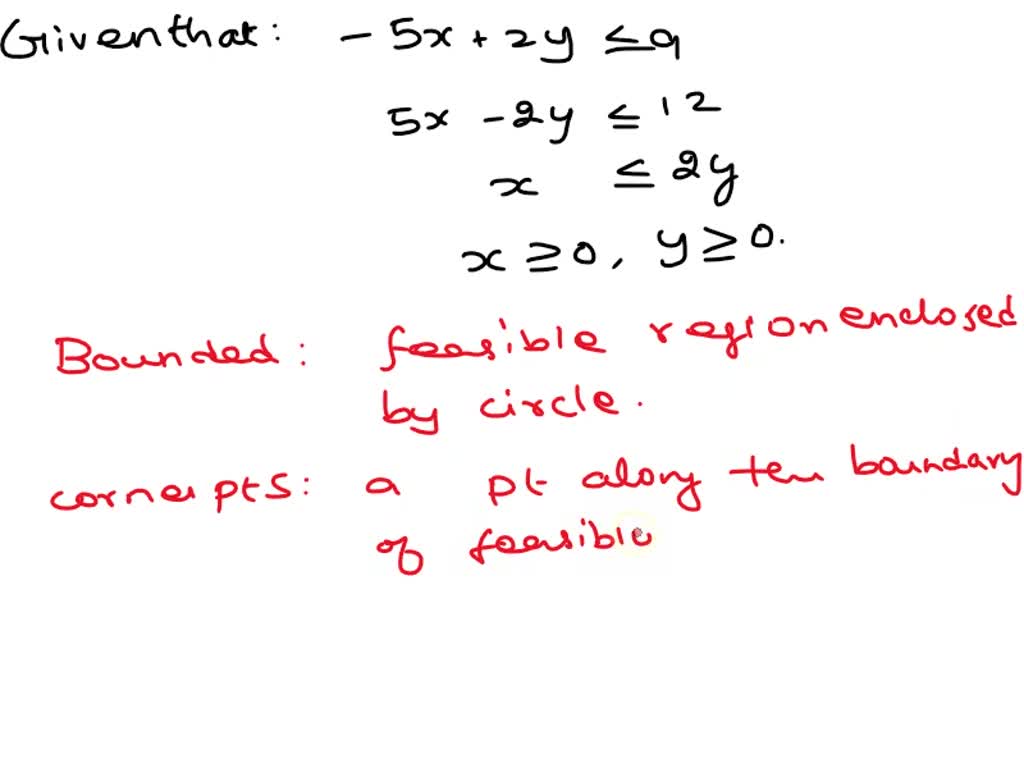 Given that: - 5x + 2y ≤ 9
5x - 2y ≤ 12
x ≤ 2y
x ≥ 0, y ≥ 0.
Bounded: feasible region enclosed
by circle.
corner pts: a pt along the boundary
of feasible